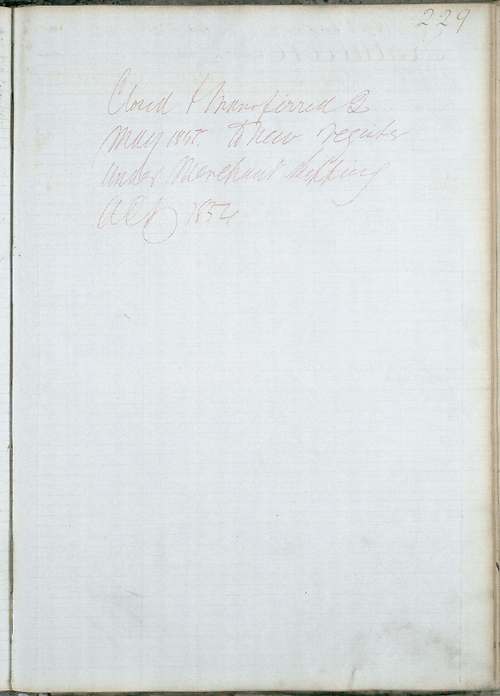 229
Closed & transferred 2
May 1855 to new register
under Merchant Shipping
Act 1854